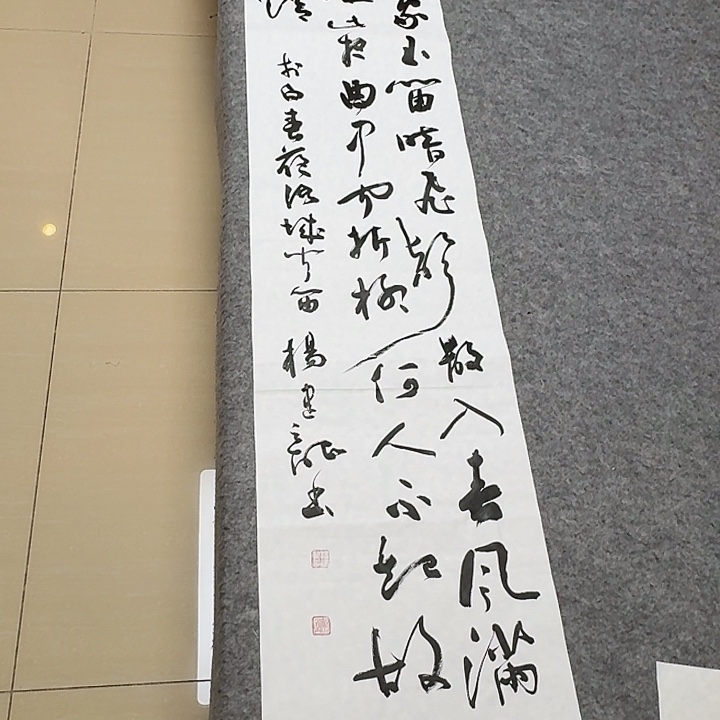 家玉笛暗飛聲散入春風滿
此夜曲中聞折柳何人不起故
情 李白春夜洛城聞笛 楊建龍書